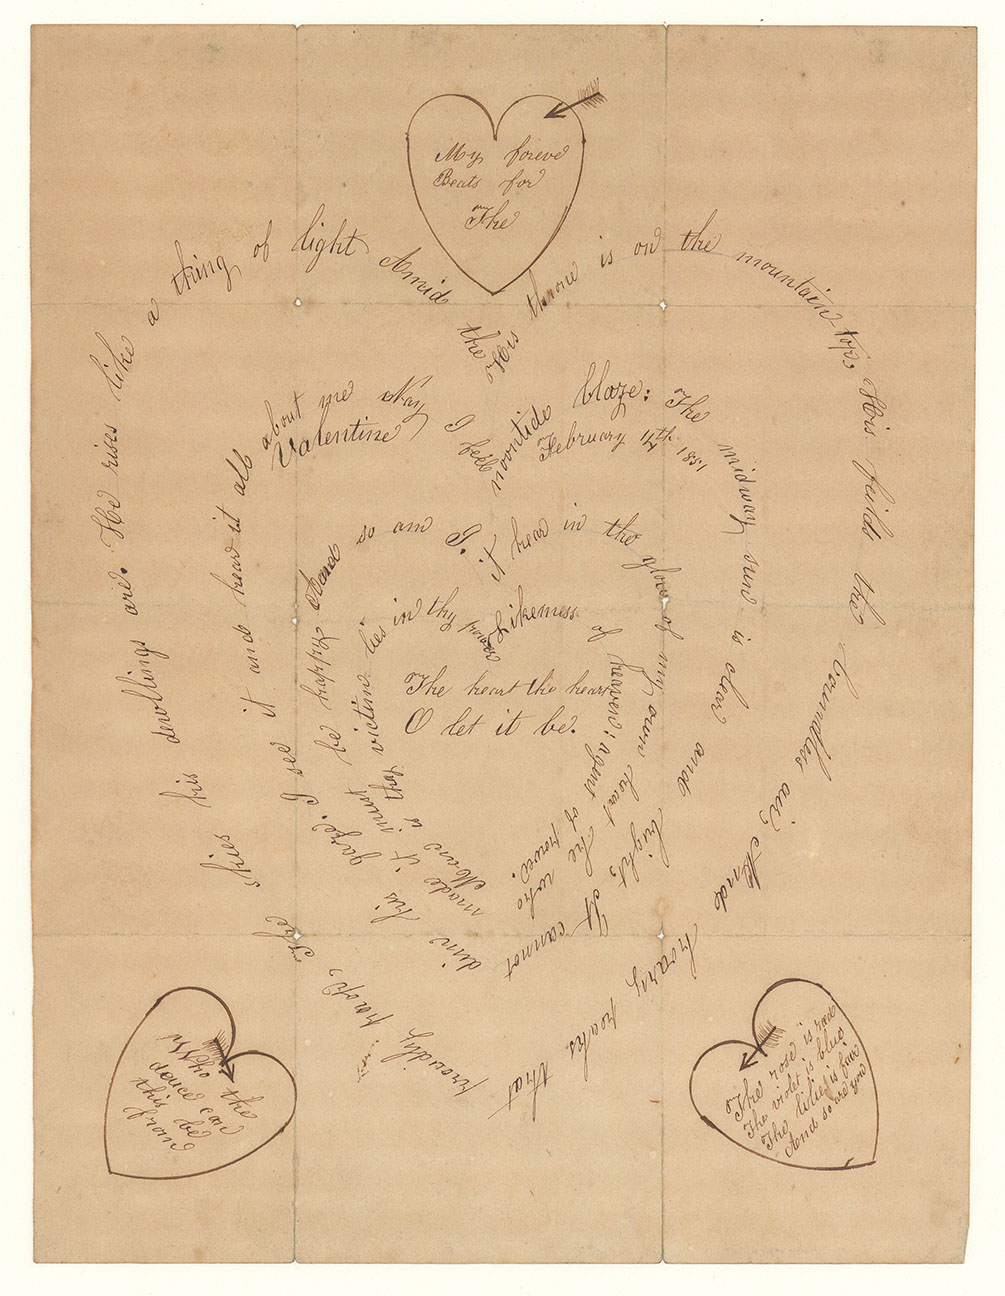 My foreve
Beats for
The
His throne is on the mountain top;
His feilds the boundless air,
And hoary peaks that proudly prop,
The skies his dwellings are.
He rises like a thing of light
Amid the noontide blaze:
The midway sun is clear and bright,
It cannot dim his gaze.
I see it and hear it all about me Nay I feel it hear in the glow of my own heart
He who made it must be happy And so am I.
Likeness of heaven: agent of power:
Man is thy victim lies in thy
Valentine
February 14th 1851
The heart the heart
O let it be.
Who the
deuce can
this be
from
The rose is read
The violet is blue
The lilies is fair
And so are you